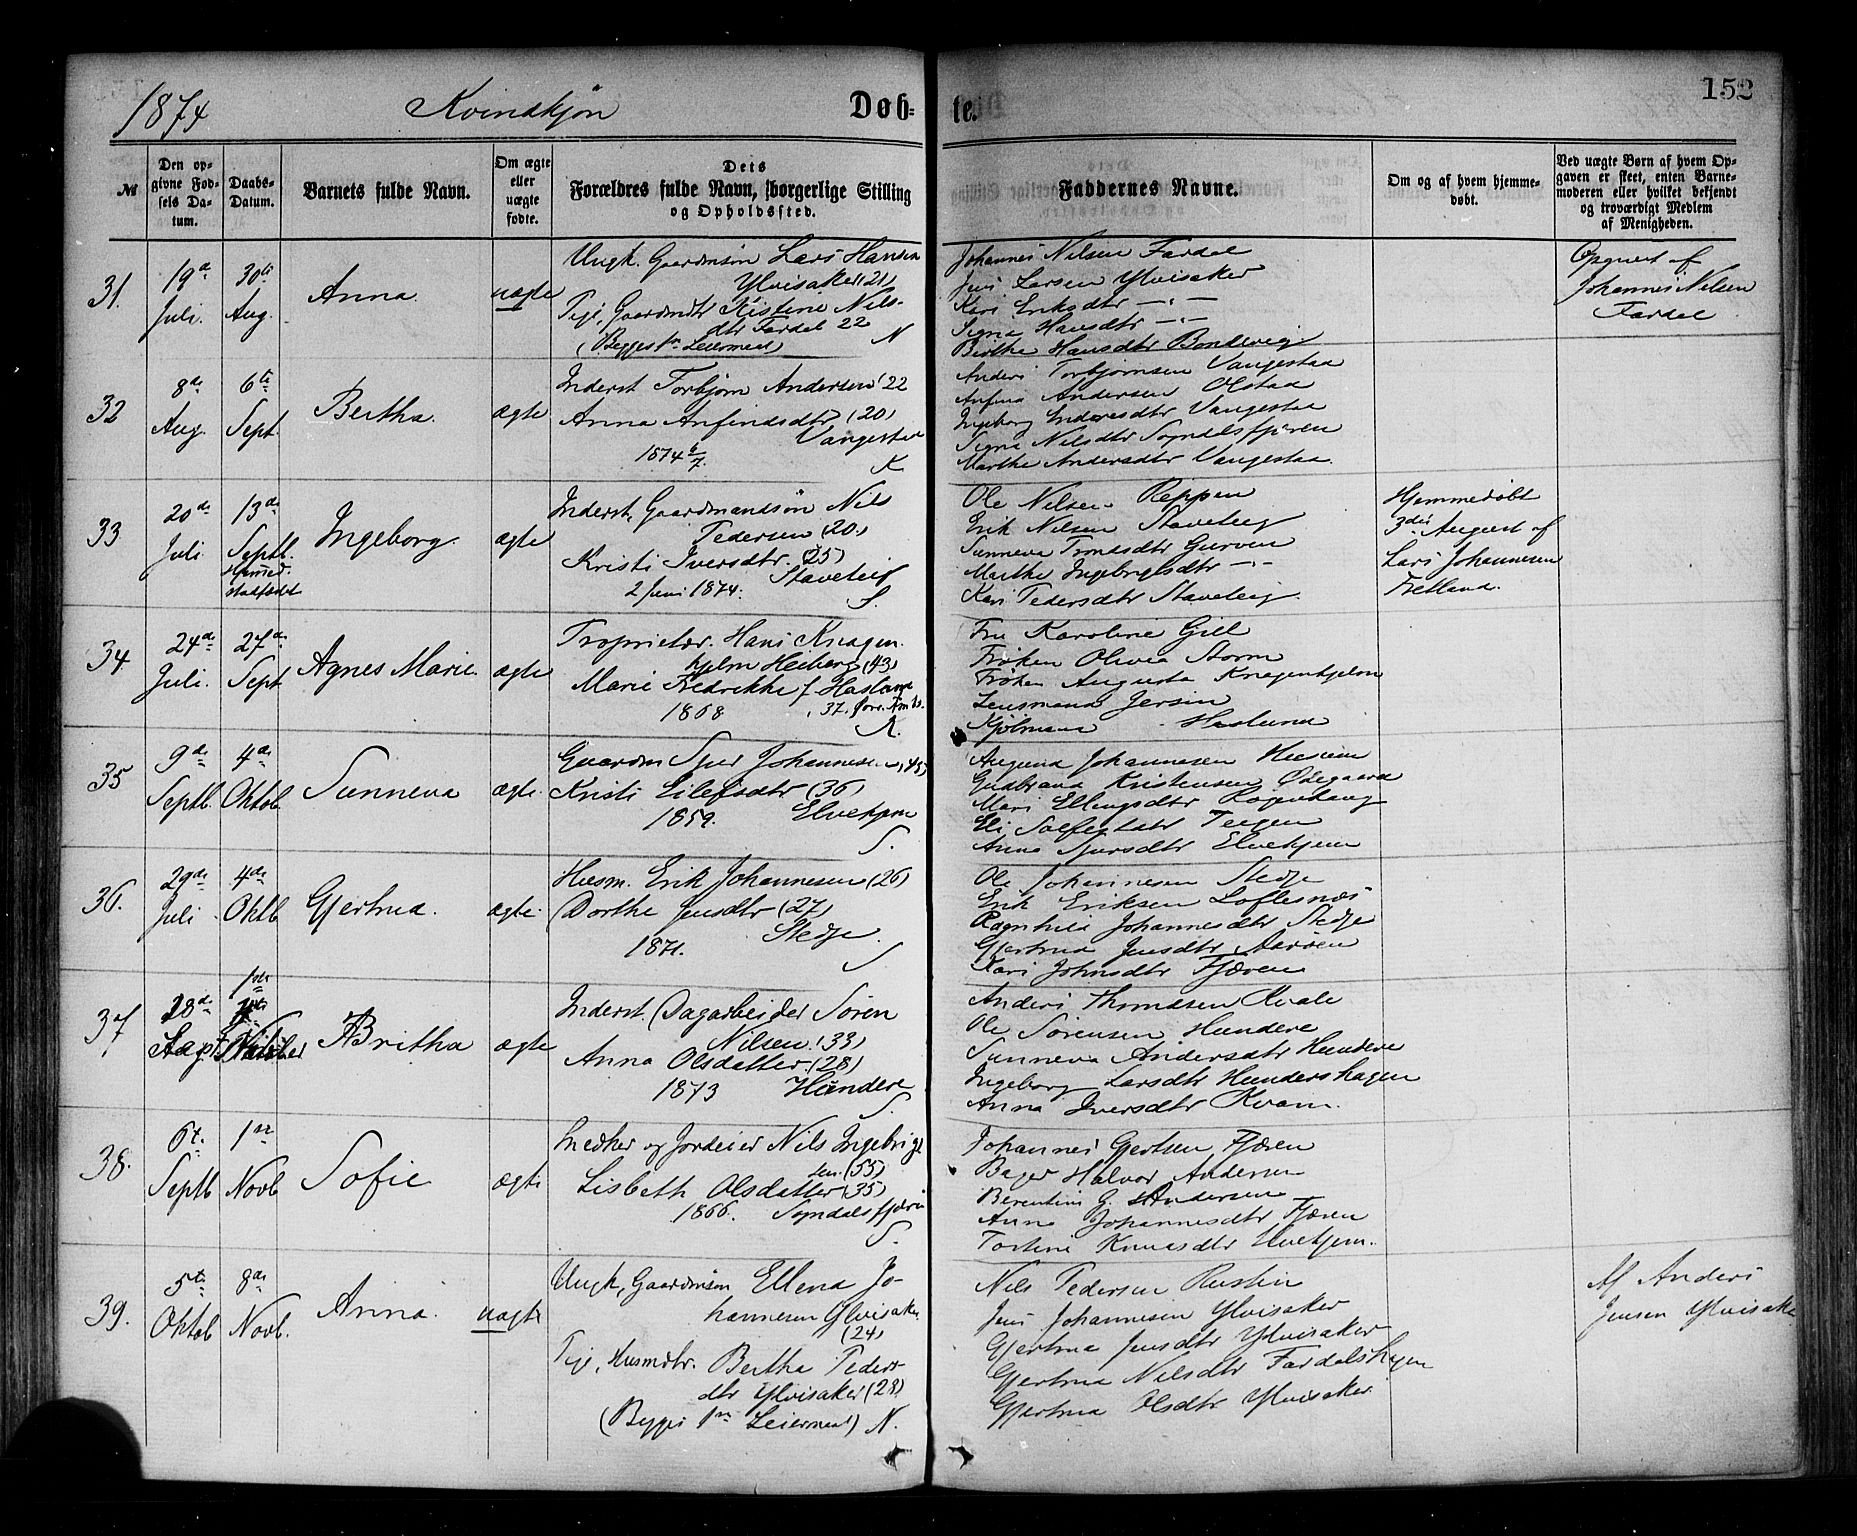 1874 Kvindkjøn Døb- te. 152
№
Den op-
givne Fød-
sels Da-
tum.
Daabs-
Datum.
Barnets fulde Navn.
Om ægte
eller
uægte
fødte.
Dets
Forældres fulde Navn, borgerlige Stilling
og Opholdssted.
Faddernes Navne.
Om og af hvem hjemme-
døbt.
Ved uægte Børn af hvem Op-
gaven er skeet, enten Barne-
moderen eller hvilket bekjendt
og troværdigt Medlem
af Menigheden.
31.
19de
Juli.
30te
Aug.
Anna
uægte
Ungk. Gaardmsøn Lars Hansen
Ylvisaker (21)
Pige, Gaardmdtr Kistine Nils-
dtr Fardal 22
(Begges 1n Leiermaal) N
Johannes Nilsen Fardal
Jens Larsen Ylvisaker
Kari Eriksdtr — " —
Signa Hansdtr — " —
Birthe Hansdtr Bondevig
Opgivet af
Johannes Nilsen
Fardal
32
8de
Aug.
6te
Sept.
Bertha.
ægte
Inderst Torbjørn Andersen 22
Anna Anfindsdtr (20)
Vangestad
1874 6/7.
K
Anders Torbjørnsen Vangestad
Anfind Andersen Olstad
Ingeborg Endresdtr Vangestad
Signa Nilsdtr Sogndalsfjøren
Marthe Andersdtr Vangestad.
33
20de
Juli.
13de
Septb.
Hjemmed.
stadfæstet
Ingeborg.
ægte
Inderst, Gaardmandsøn Nils
Pedersen (20)
Kristi Iversdtr. (25)
2 Juni 1874. Staveteig
S.
Ole Nilsen Reppen
Erik Nilsen Staveteig
Sunneva Trondsdtr Gurven
Marthe Ingebrigtsdtr — " —
Kari Pedersdtr Staveteig.
Hjemmedøbt
3die August af
Lars Johannesen
Fretland.
34
24de
Juli.
27de
Sept
Agnes Marie.
ægte
Proprietær. Hans Knagen-
hjelm Heiberg (43)
Marie Fredrikke f. Haslund
1868 , 37.
K.
Fru Karoline Giel
Frøken Olivia Storm
Frøken Augusta Knagenhjelm
Lensmand Jersin
Kjøbmand Haslund
35
9de
Septb.
4de
Oktob
Sunneva
ægte.
Gaardm Sjur Johannesen (45)
Kristi Eilefsdtr (36)
1859. Elvekjem
S.
Aagund Johannesen Husum
Gudbrand Kristensen Ødegaard
Mari Ellingsdtr Rogenhaug
Eli Solfestdtr Teigen
Anna Sjursdtr Elvekjem
36.
29de
Juli.
4de
Oktb
Gjertrud.
ægte.
Husm. Erik Johannesen (26)
Dorthe Jensdtr (27)
1871. Stedje.
S
Ole Johannesen Stedje
Erik Eriksen Loftesnæs
Ragnhild Johannesdtr Stedje
Gjertrud Jensdtr Aarøen
Kari Johnsdtr Fjæren
37
28de
Sept
1ste
Britha
ægte
Inderst. Dagarbeider Søren
Nilsen (33)
Anna Olsdatter (28)
1873 Hundere
S.
Anders Thomassen Kvale
Ole Sørensen Hundere
Sunneva Andersdtr Hundere
Ingeborg Larsdtr Hundershagen
Anna Iversdtr Kvam.
38.
6t.
Septb
1ste
Novb
Sofie
ægte
Snedker og Jordeier Nils Ingebrigt-
sen (55)
Lisbeth Olsdatter (35)
1866. Sogndalsfjæren
S.
Johannes Gjertsen Fjæren
Bager Halvor Andersen
Berentine G. Andersen
Anna Johannesdtr Fjæren
Torbine Knudsdtr Elvekjem.
39.
5te
Oktob
8de
Novb.
Anna.
uægte
Ungk, Gaardmsøn Ellend Jo-
hannesen Ylvisaker
(24)
Pige, Husmdtr. Bertha Peders-
dtr Ylvisaker (28)
(Begges 1ste Leiermaal) N.
Nils Pedersen Rustin
Jens Johannesen Ylvisaker
Gjertrud Jensdtr Ylvisaker
Gjertrud Nilsdtr Fardalshagen
Gjertrud Olsdtr Ylvisaker
Af Anders
Jensen Ylvisaker